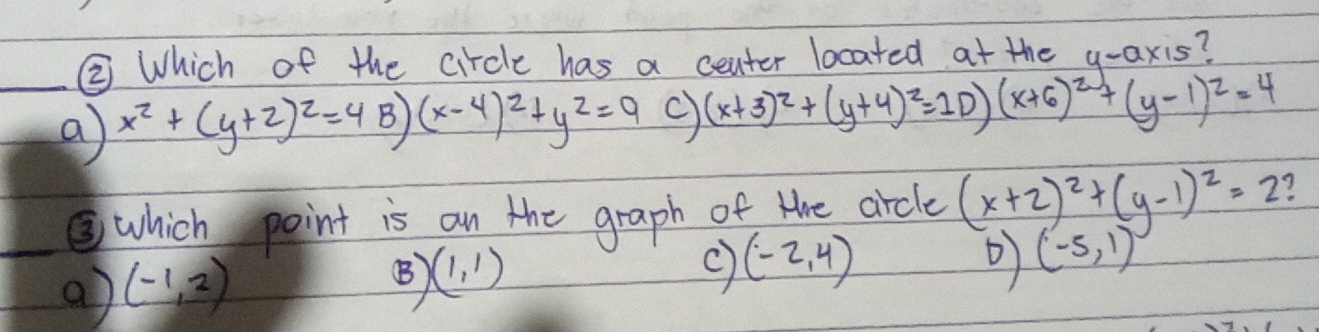 ② Which of the circle has a center located at the y-axis?
a) x² + (y+2)² = 4 B) (x-4)² + y² = 9 C) (x+3)² + (y+4)² = 1 D) (x+6)² + (y-1)² = 4
③ Which point is on the graph of the circle (x+2)² + (y-1)² = 2?
a) (-1,2) B) (1,1) C) (-2,4) D) (-5,1)